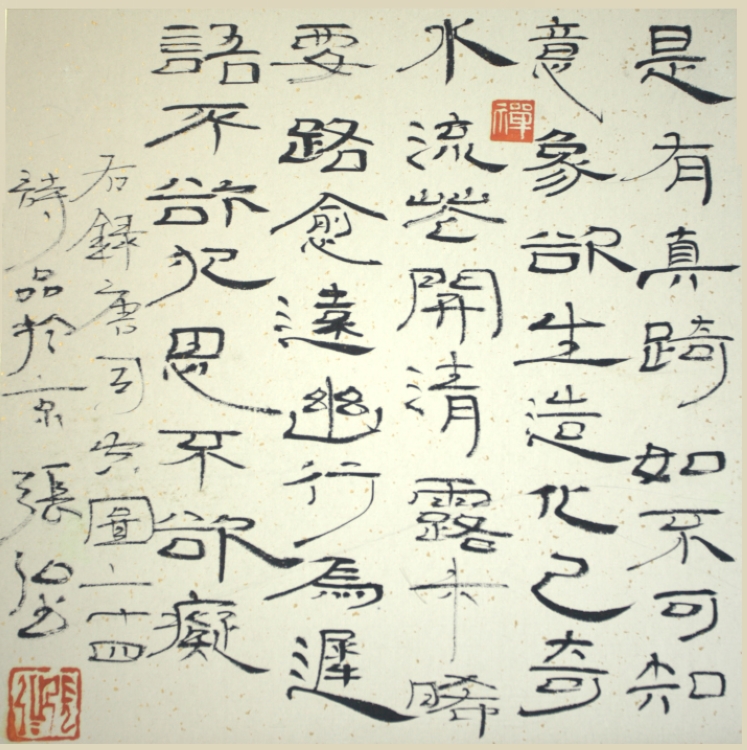 是有真踦如不可知
意象欲生造化已奇
水流花開清露未晞
要路愈遠幽行為遲
語不欲犯思不欲癡
右録唐司空圖二十四
詩品於京張
禪